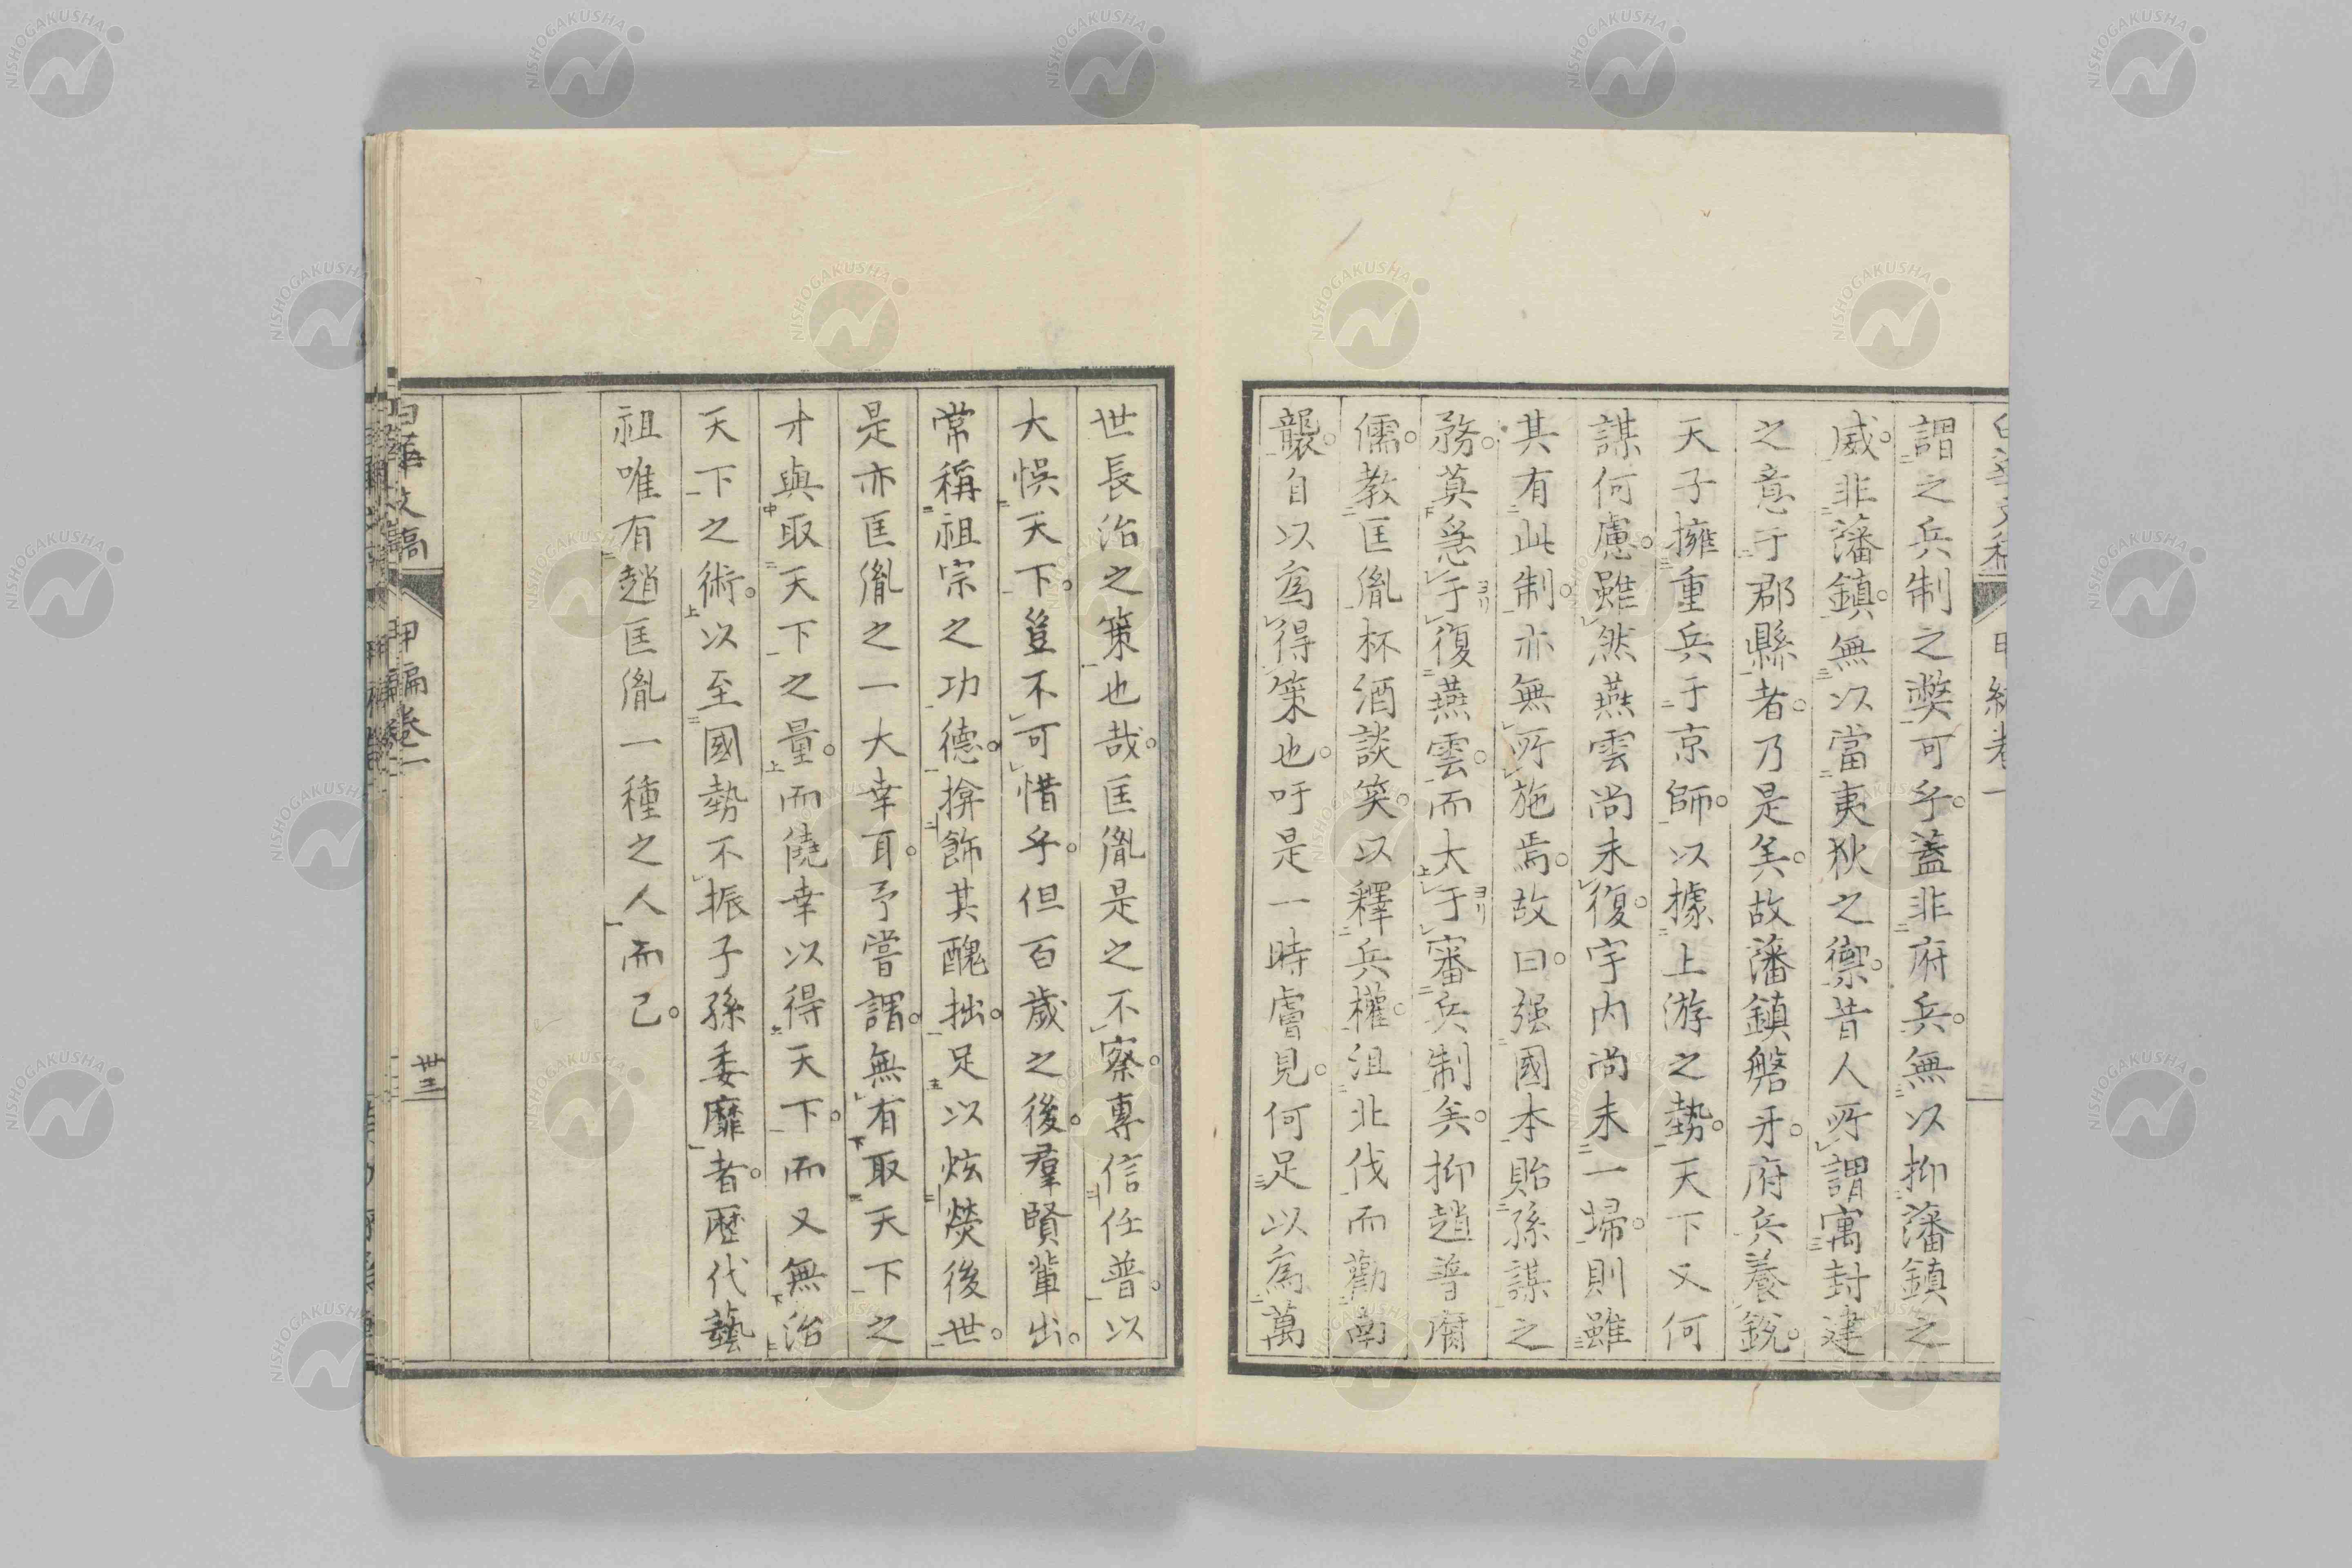 謂之兵制之獘可乎。蓋非府兵。無以抑藩鎮之
威。非藩鎮。無以當夷狄之禦。昔人所謂寓封建
之意于郡縣者。乃是矣。故藩鎮磐牙。府兵養銳。
天子擁重兵于京師。以據上游之勢。天下又何
謀何慮。雖然燕雲尚未復。宇內尚未一埽。則雖
其有此制。亦無所施焉。故曰。强國本貽孫謀之
務。莫急于復燕雲。而大于審兵制矣。抑趙普腐
儒。教匡胤杯酒談笑。以釋兵權。沮北伐而勸南
襲。自以為得策也。吁是一時膚見。何足以為萬
世長治之策也哉。匡胤是之不察。專信任普。以
大悞天下。豈不可惜乎。但百歲之後。羣賢輩出。
常稱祖宗之功德。揜飾其醜拙。足以炫熒後世。
是亦匡胤之一大幸耳。予嘗謂。無有取天下之
才與取天下之量。而僥幸以得天下。而又無治
天下之術。以至國勢不振子孫委靡者。歷代藝
祖唯有趙匡胤一種之人而已。
白華文稿 甲編卷一 卅三
NISHOGAKUSHA